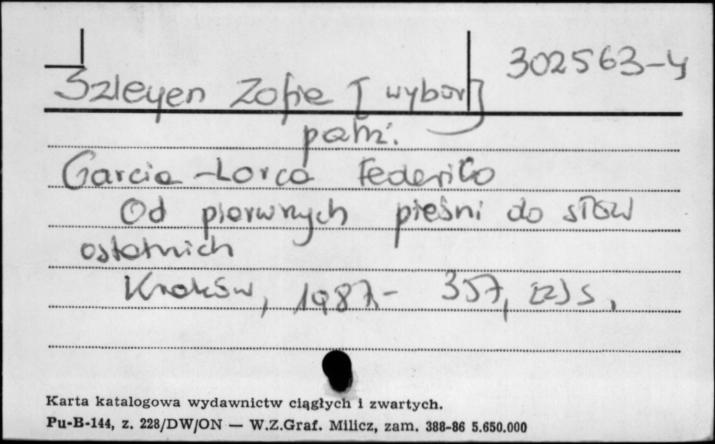 302563-4
Szleyen Zofie [wybór]
patrz:
Garcia-Lorca Federiko
Od pierwszych pieśni do słów
ostatnich
Kraków, 1987.- 357, [2] s.
Karta katalogowa wydawnictw ciągłych i zwartych.
Pu-B-144, z. 228/DW/ON — W.Z.Graf. Milicz, zam. 388-86 5.650.000